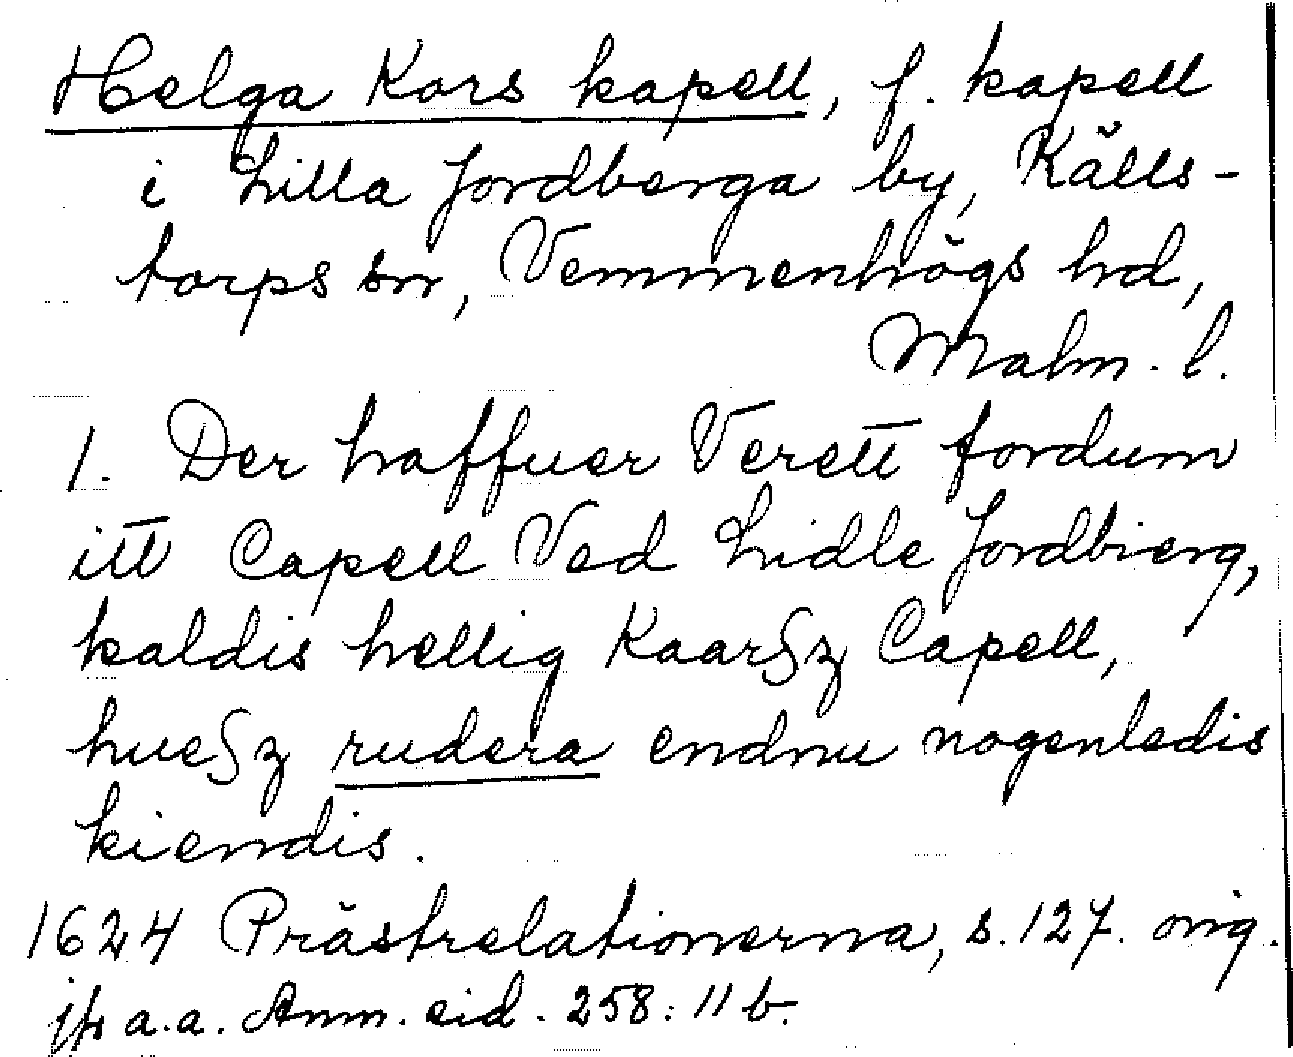 Helga Kors kapell, f. kapell
i Lilla Jordberga by, Källs-
torps sn, Vemmenhögs hd,
Malm. l.
1. Der haffuer Verett fordum
itt Capell Ved Lidle Jordbierg,
kaldis hellig Kaarſz Capell,
hueſz rudera endnu nogenledis
kiendis.
1624 Prästrelationerna, s. 127. orig.
jfr a.a. Anm. sid. 258: 11 b.